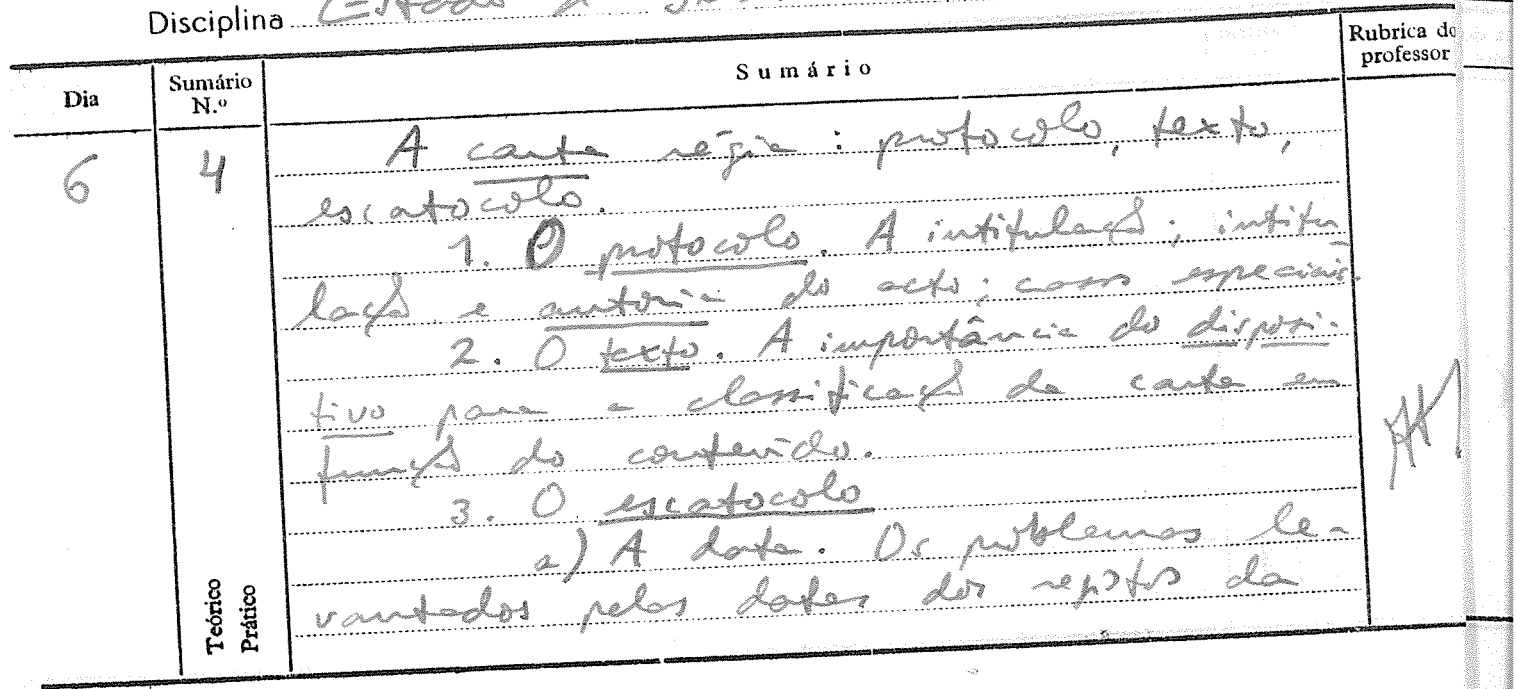 Disciplina
Dia
Sumário N.º
Sumário
Rubrica do professor
6
4
A carta régia : protocolo, texto,
escatocolo.
1. O protocolo. A intitulação; intitu-
lação e autoria do acto; casos especiais.
2. O texto. A importância do disposi-
tivo para a classificação da carta em
função do conteúdo.
3. O escatocolo
a) A data. Os problemas le-
vantados pelas datas dos registos da
Teórico
Prático